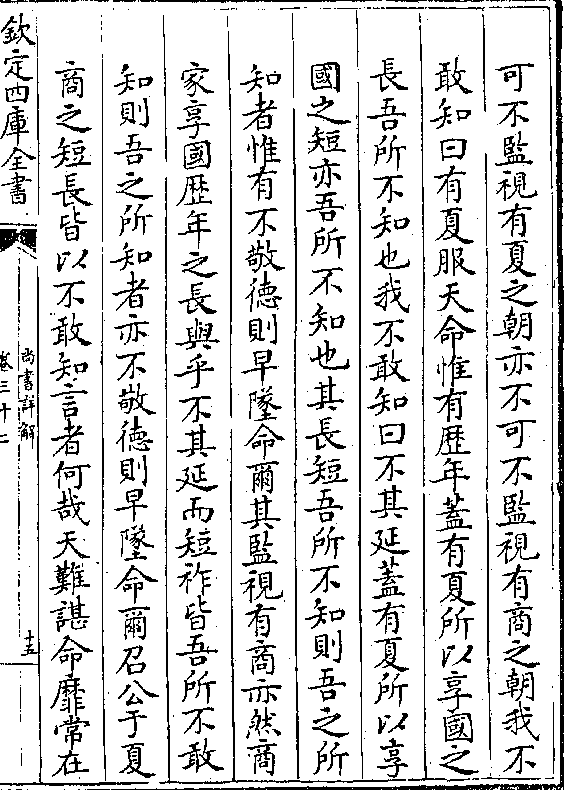 可不監視有夏之朝亦不可不監視有商之朝我不
敢知曰有夏服天命惟有歴年蓋有夏所以享國之
長吾所不知也我不敢知曰不其延蓋有夏所以享
國之短亦吾所不知也其長短吾所不知則吾之所
知者惟有不敬德則早墜命爾其監視有商亦然商
家享國歴年之長與乎不其延而短祚皆吾所不敢
知則吾之所知者亦不敬德則早墜命爾召公于夏
商之短長皆以不敢知言者何哉天難諶命靡常在
欽定四庫全書
尚書詳解
卷三十二
十五